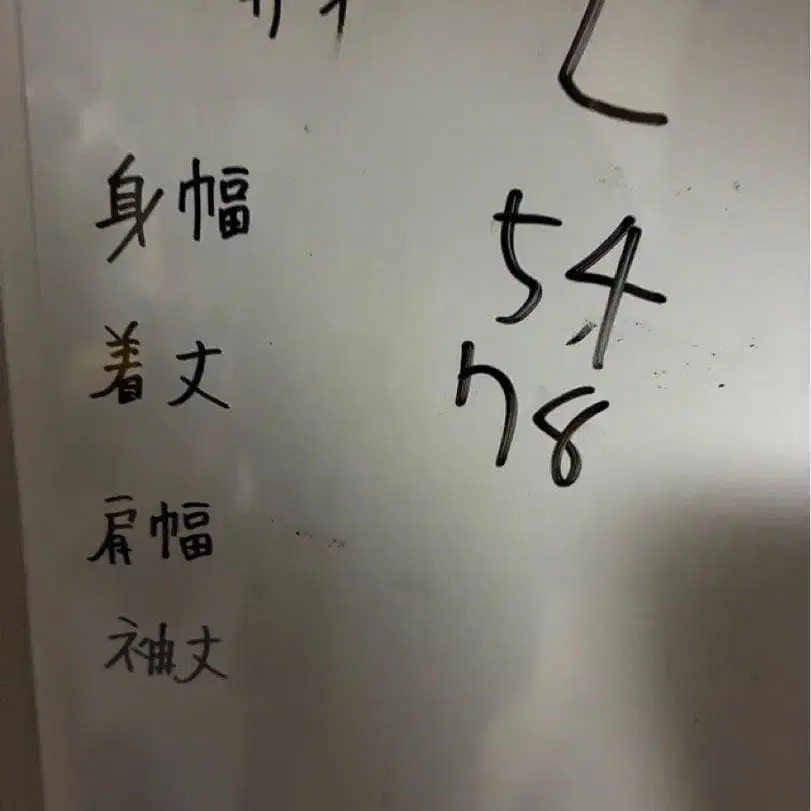 L
身幅 54
着丈 78
肩幅
袖丈